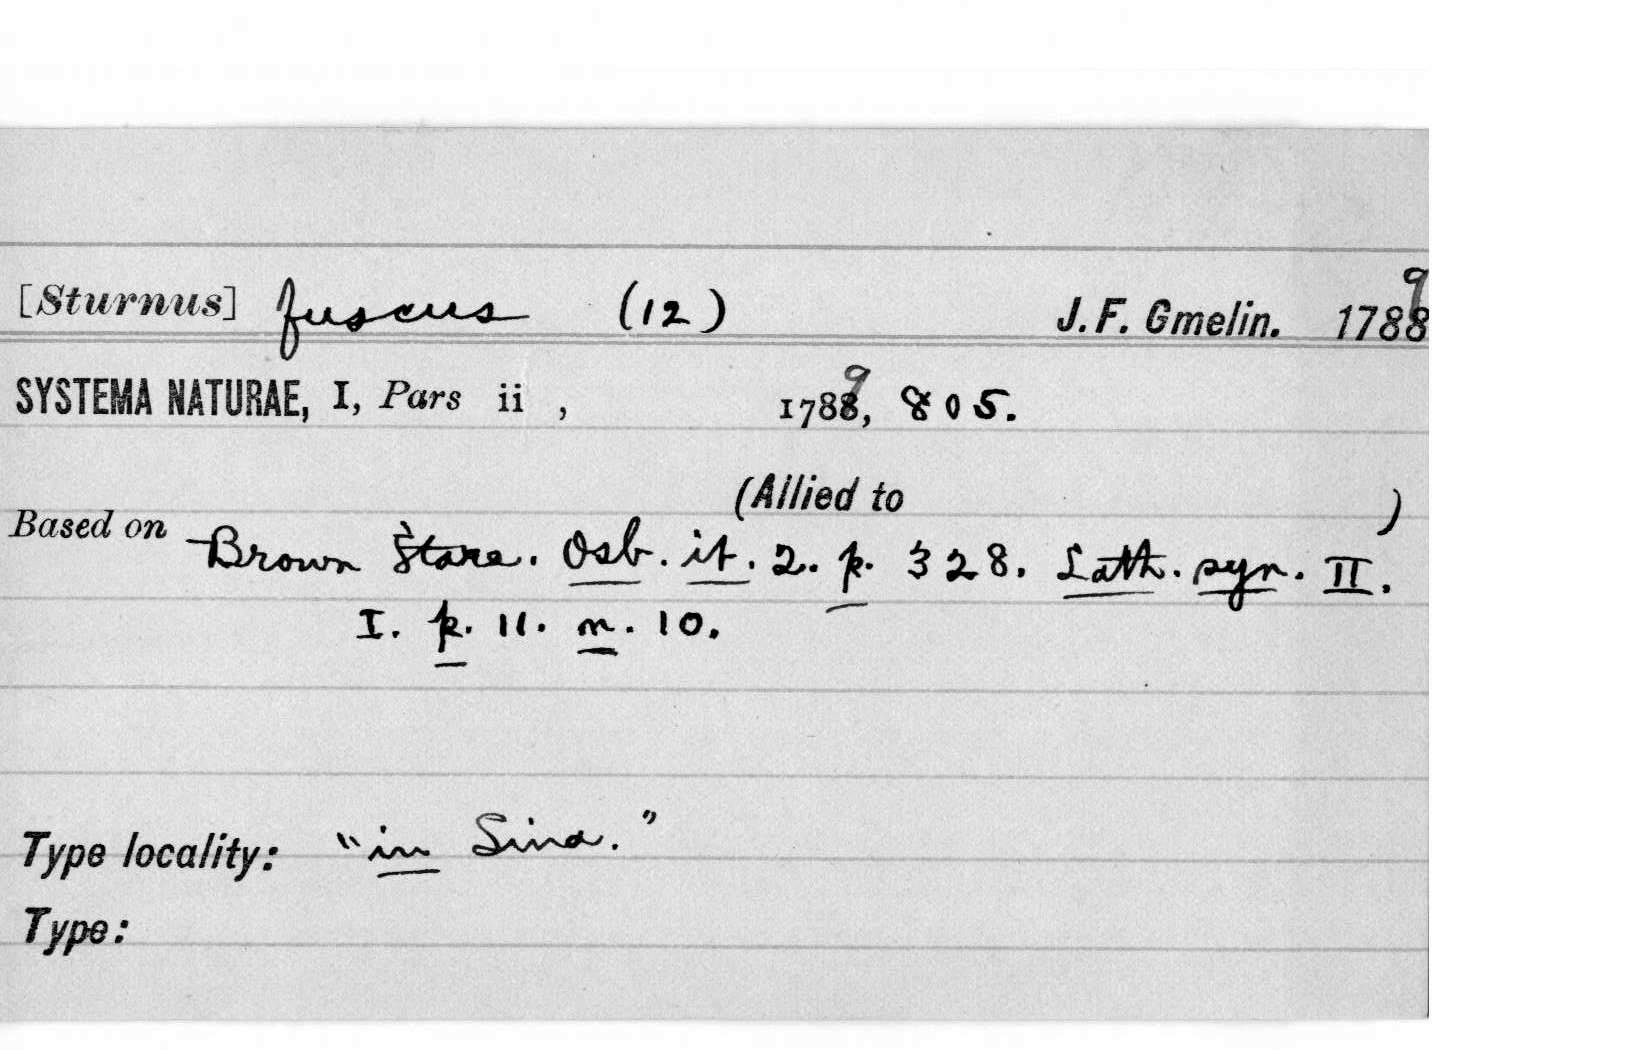 [Sturnus] fuscus (12) J. F. Gmelin. 1789
SYSTEMA NATURAE, I, Pars ii , 1789, 805.
(Allied to )
Based on Brown Stare. Osb. it. 2. p. 328. Lath. syn. II.
I. p. 11. n. 10.
Type locality: "in Sina."
Type: